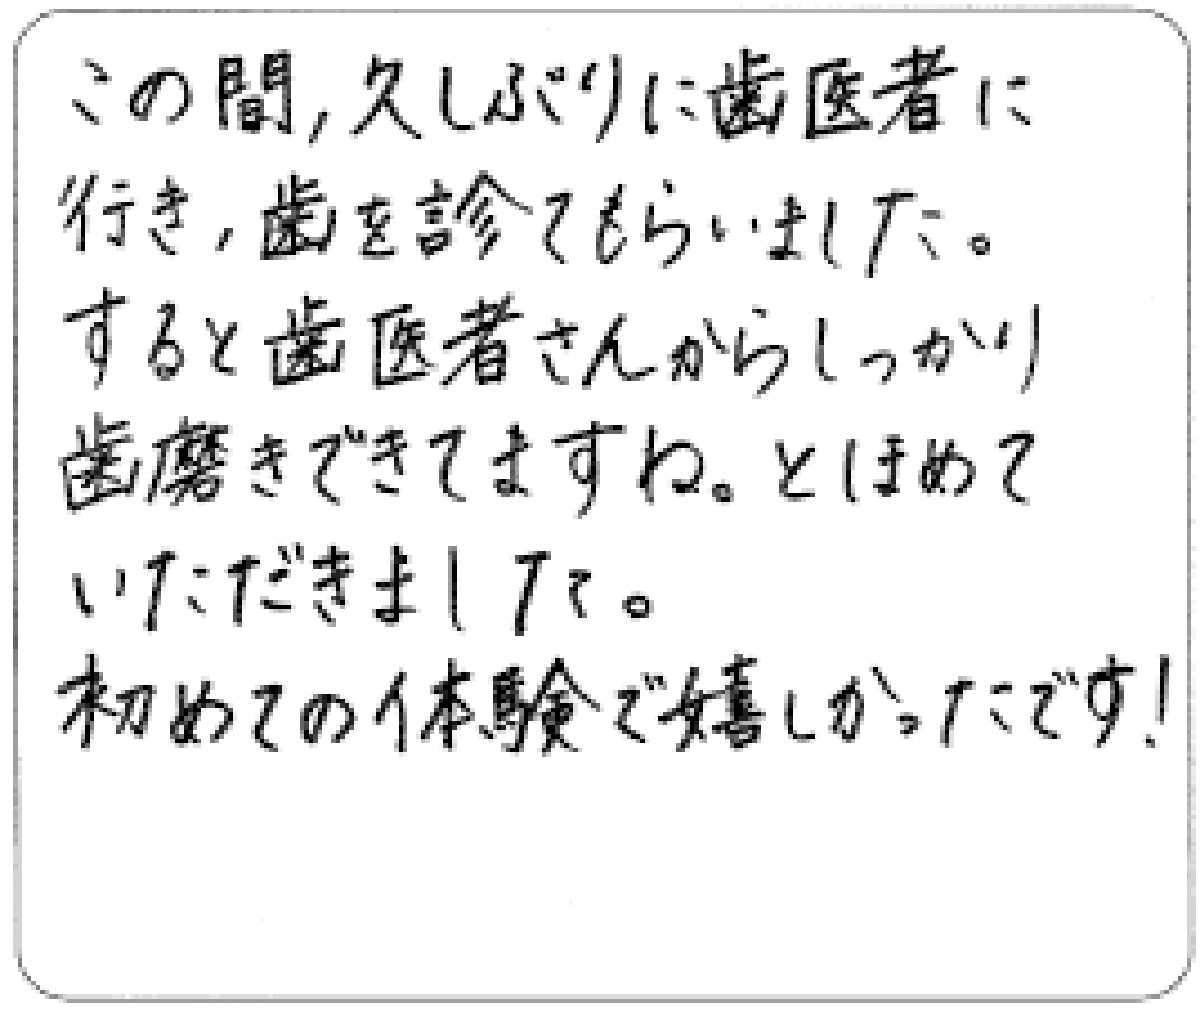 この間,久しぶりに歯医者に
行き,歯を診てもらいました。
すると歯医者さんからしっかり
歯磨きできてますね。とほめて
いただきました。
初めての体験で嬉しかったです!